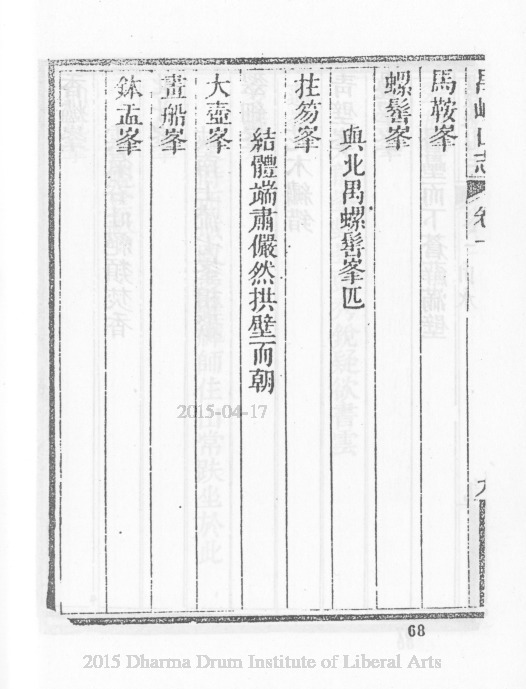 馬鞍峯
螺髻峯
與北禺螺髻峯匹
拄笏峯
結體端肅儼然拱壁而朝
大壺峯
畫船峯
鉢盂峯
2015-04-17
68
2015 Dharma Drum Institute of Liberal Arts